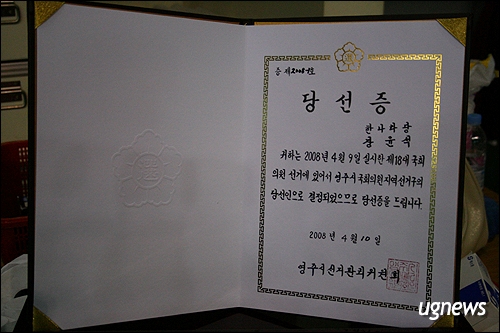 증 제2008-1호
당선증
한나라당
장윤석
귀하는 2008년 4월 9일 실시한 제18대 국회
의원 선거에 있어서 영주시 국회의원지역선거구의
당선인으로 결정되었으므로 당선증을 드립니다.
2008년 4월 10일
영주시선거관리위원회
ugnews